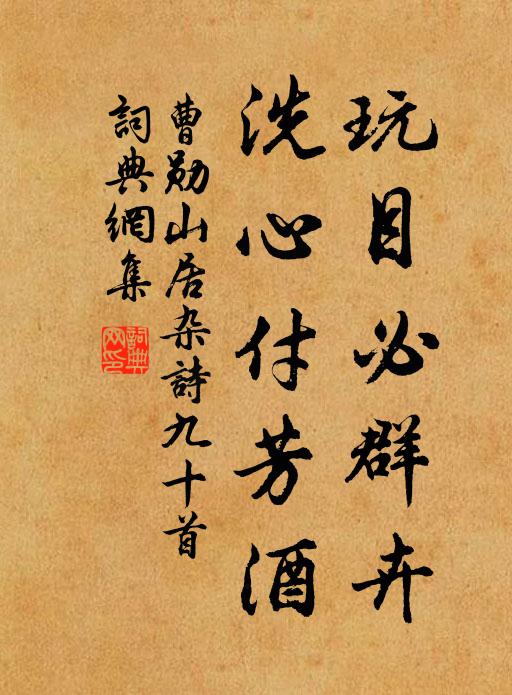 玩目必群卉
洗心付芳酒
曹勋山居杂詩九十首
詞典網集
詞典網印